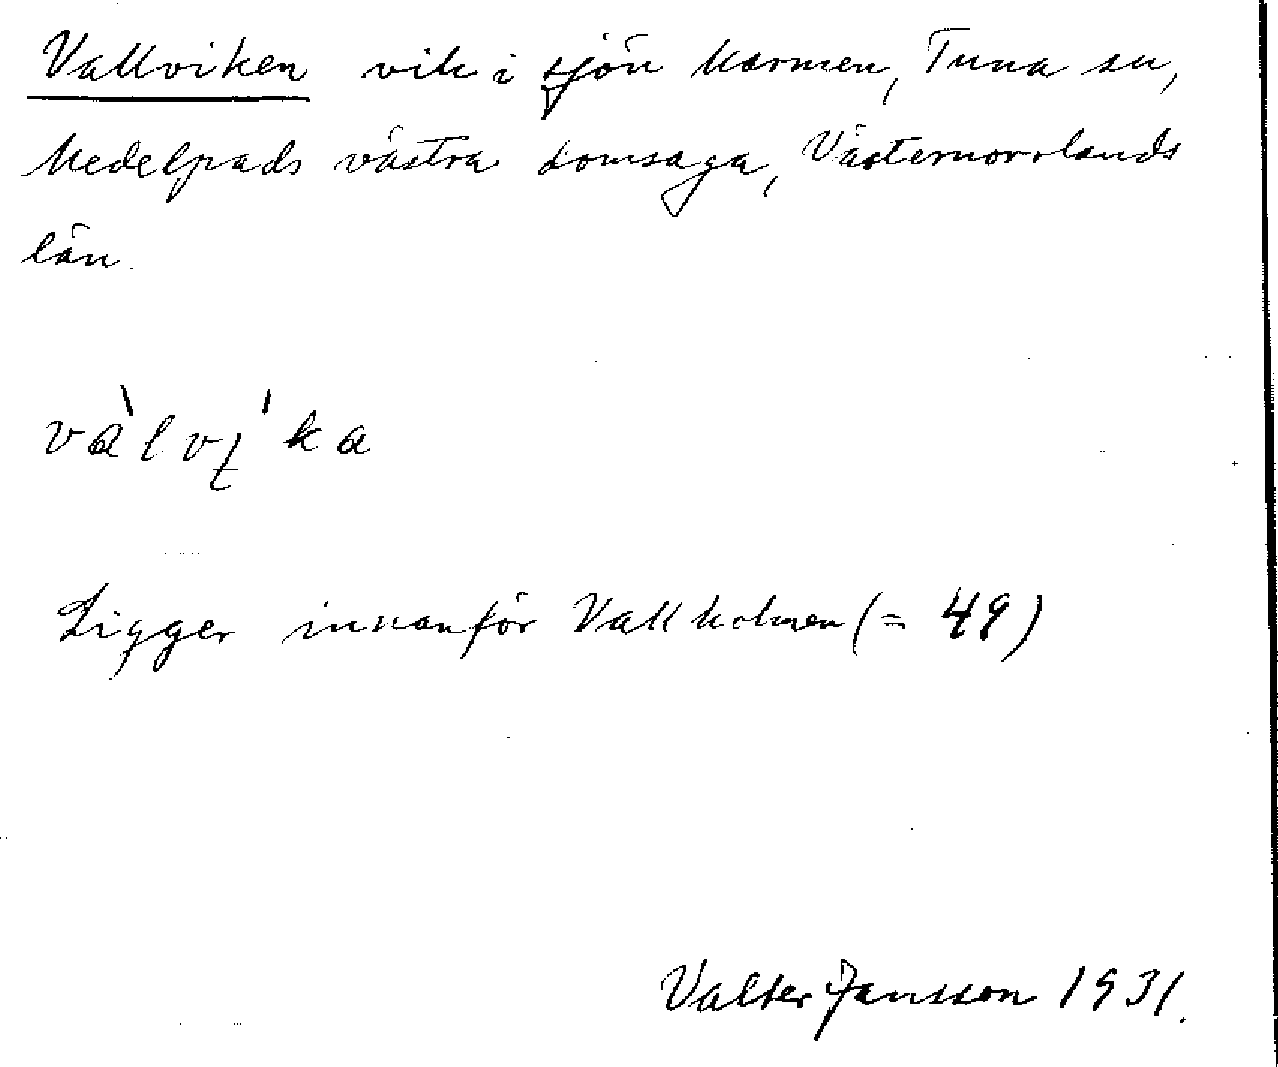 Vallviken vik i sjön Marmen, Tuna sn,
Medelpads västra domsaga, Västernorrlands
län.
vàlvi̱'ka
Ligger innanför Vallholmen (= 49)
Valter Jansson 1931.